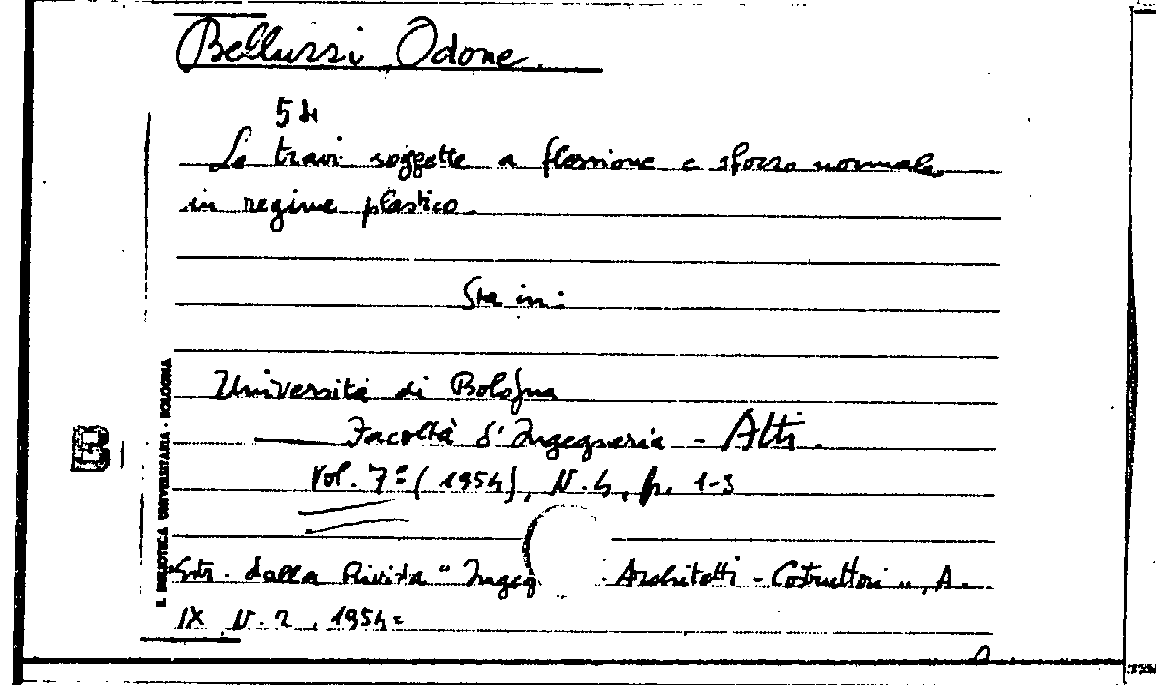 Belluzzi Odone.
54
Le travi soggette a flessione e sforzo normale
in regime plastico.
Sta in:
Università di Bologna
Facoltà d'Ingegneria - Atti.
Vol. 7º (1954), N. 4, p. 1-3
Estr. dalla Rivista "Ingeg Architetti - Costruttori", A.
IX N. 2, 1954=
R. BIBLIOTECA UNIVERSITARIA - BOLOGNA